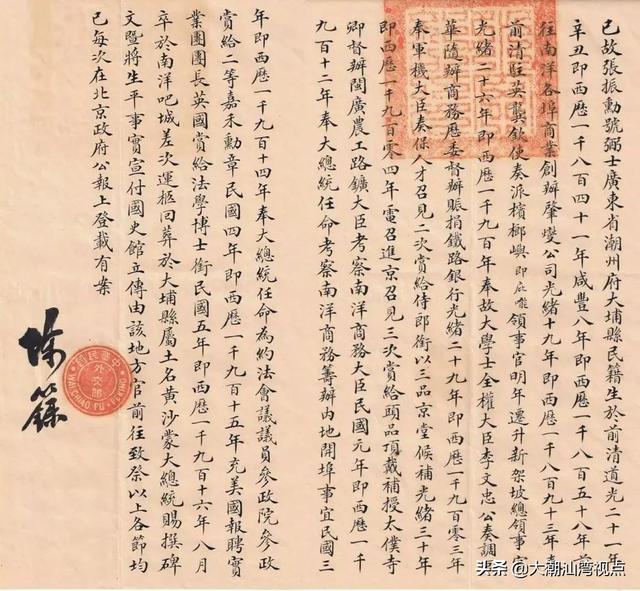 已故張振勳號弼士廣東省潮州府大埔縣民籍生於前清道光二十一年
辛丑即西歷一千八百四十一年咸豐八年即西歷一千八百五十八年前
往南洋各埠商業創辦肇燮公司光緒十九年即西歷一千八百九十三年奉
前清駐英龔欽使奏派檳榔嶼即庇能領事官明年遷升新架坡總領事官
光緒二十六年即西歷一千九百年奉故大學士全權大臣李文忠公奏調回
華隨辦商務歷委督辦賑捐鐵路銀行光緒二十九年即西歷一千九百零三年
奉軍機大臣奏保人才召見二次賞給侍郎銜以三品京堂候補光緒三十年
即西歷一千九百零四年電召進京召見三次賞給頭品頂戴補授太僕寺
卿督辦閩廣農工路鑛大臣考察南洋商務大臣民國元年即西歷一千
九百十二年奉大總統任命考察南洋商務籌辦內地開埠事宜民國三
年即西歷一千九百十四年奉大總統任命為約法會議議員參政院參政
賞給二等嘉禾勳章民國四年即西歷一千九百十五年充美國報聘實
業團團長英國賞給法學博士銜民國五年即西歷一千九百十六年八月
卒於南洋吧城差次運柩回葬於大埔縣屬土名黃沙蒙大總統賜撰碑
文暨將生平事實宣付國史館立傳由該地方官前往致祭以上各節均
已每次在北京政府公報上登載有案
中華民國
外交部
WAICHIAO PU PEKING
陳籙
头条 @大潮汕湾视点